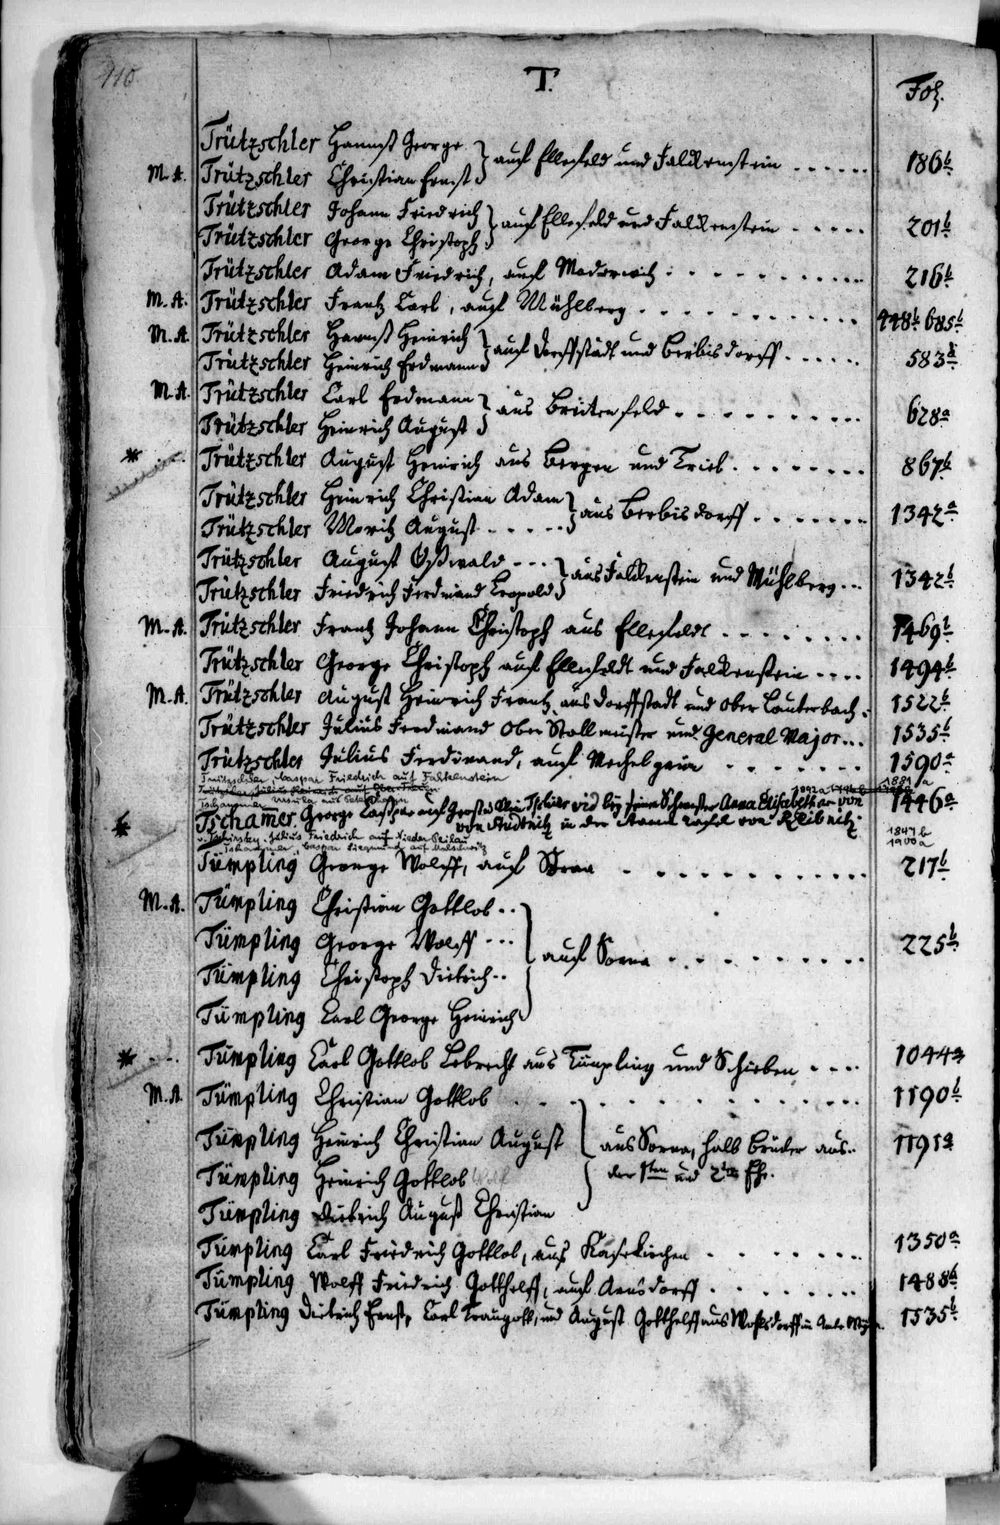 110.
T.
Fol.
Trützschler Hannß George } auf Ellefeld und Falckenstein . . . . . . 186b
M. A. Trützschler Christian Ernst
Trützschler Johann Friedrich } auf Ellefeld und Falckenstein . . . . . 201b
Trützschler George Christoph
Trützschler Adam Friedrich, auf . . . . . . . 216b
M. A. Trützschler Frantz Carl, auf Mühlberg . . . . . . . 448b 685b
M. A. Trützschler Hannß Heinrich } auf Dorffstädt und Berbisdorff . . . . . 583b
Trützschler Heinrich Erdmann
M. A. Trützschler Carl Erdmann } aus Breitenfeld . . . . . . . . . 628a
Trützschler Heinrich August
* Trützschler August Heinrich aus Bergen und Trieb . . . . . . . 867b
Trützschler Heinrich Christian Adam } aus Berbisdorff . . . . . . . 1342a
Trützschler Moritz August . . . . .
Trützschler August Oßwald - - - } aus Falckenstein und Mühlberg . . . 1342b
Trützschler Friedrich Ferdinand Leopold
M. A. Trützschler Frantz Johann Christoph aus Ellefeldt . . . . . . . . 1469b
Trützschler George Christoph auf Ellefeldt und Falckenstein . . . . 1494b
M. A. Trützschler August Heinrich Frantz, aus Dorffstadt und Ober Lauterbach . 1522b
Trützschler Julius Ferdinand Ober Stallmeister und General Major . . . 1535b
Trützschler Julius Ferdinand, auf Mechelgrün . . . . . . . 1590a
Trützschler, Caspar Friedrich auf Falkenstein 1881a
* Tschamer George Caspar auf Groß seine Schwester Anna Elisabeth von 1446a
von Studnitz in der von Kleibnitz
Julius Friedrich auf Nieder 1847b
Caspar Siegmund auf 1900a
Tümpling George Wolff, auf Sorna . . . . . . . . . . 217b
M. A. Tümpling Christian Gottlob . .
Tümpling George Wolff - - - } auf Sorna . . . . . . . . 225b
Tümpling Christoph Dietrich . .
Tümpling Carl George Heinrich
* Tümpling Carl Gottlob Lebrecht aus Tümpling und Schieben . . . . 1044a
M. A. Tümpling Christian Gottlob . . . . . . . . . . 1190b
Tümpling Heinrich Christian August } aus Sorna, halb Brüder aus 1191a
Tümpling Heinrich Gottlob der 1sten und 2ten Ehe.
Tümpling Dietrich August Christian
Tümpling Carl Friedrich Gottlob, aus Käsekirchen . . . . . . . 1350a
Tümpling Wolff Friedrich Gotthelff, auf Arnsdorff . . . . . . . 1488b
Tümpling Dietrich Ernst, Carl Traugott, und August Gotthelff aus 1535b